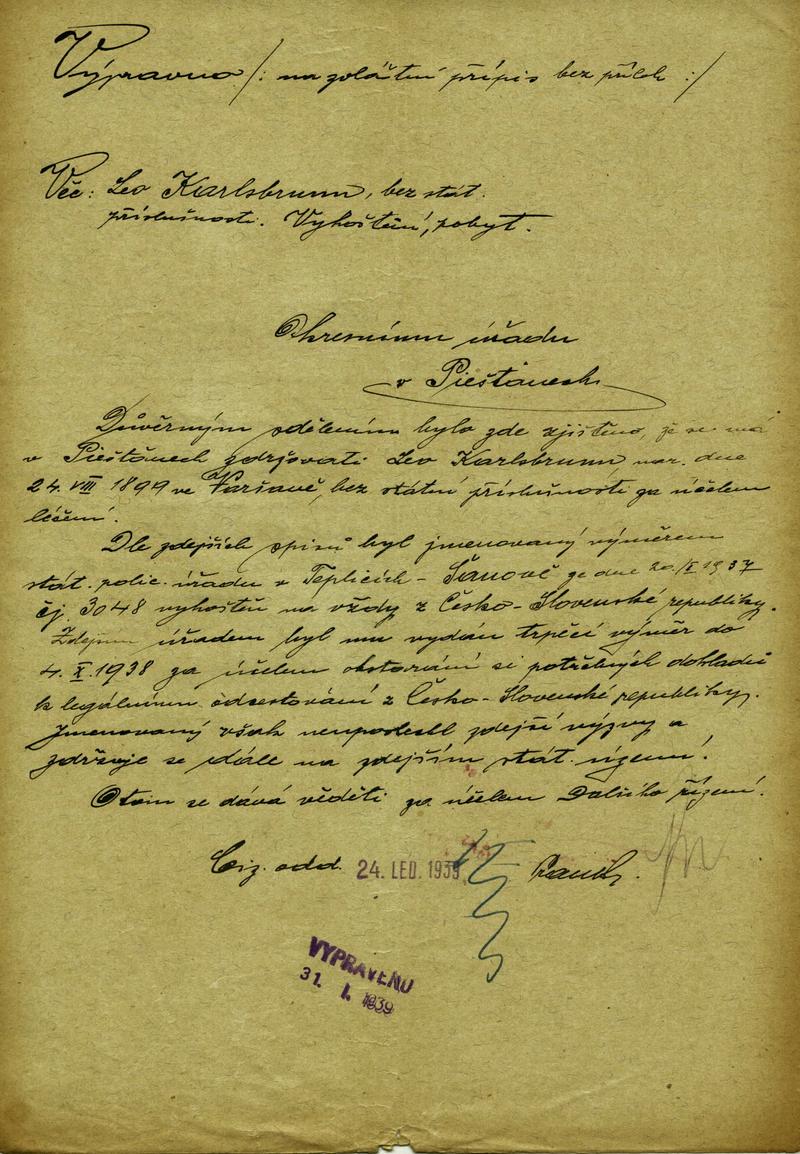 Výpravna /: na zvláštní přípis bez příloh :/
Věc: Leo Karlsbrunn, bez stát.
příslušnosti. Vyhoštění, pobyt.
Okresnímu úřadu
v Piešťanech
Důvěrným sdělením bylo zde zjištěno, že se má
v Piešťanech zdržovati Leo Karlsbrunn, nar. dne
24. VIII 1899 ve Varšavě, bez státní příslušnosti za účelem
léčení.
Dle zdejších spisů byl jmenovaný výměrem
stát. polic. úřadu v Teplicích - Šanově ze dne 20./I 1937
čj. 3048 vyhoštěn na vždy z Česko-Slovenské republiky.
Zdejším úřadem byl mu vydán trpěcí výměr do
4. X. 1938 za účelem obstarání si potřebných dokladů
k legálnímu odcestování z Česko-Slovenské republiky.
Jmenovaný však neuposlechl zdejší výzvy a
zdržuje se dále na zdejším stát. území.
O tom se dává věděti za účelem dalšího řízení.
Ciz. odd. 24. LED. 1939
VYPRAVENO
31. I. 1939